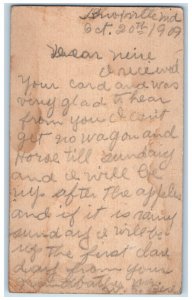 Oct. 20th 1909
Dear
I received
Your card and was
very glad to hear
from you I cant
get no wagon and
Horse till sunday
and I will be
up after the apples
and if it is rainy
sunday I will be
up the first clear
day from your